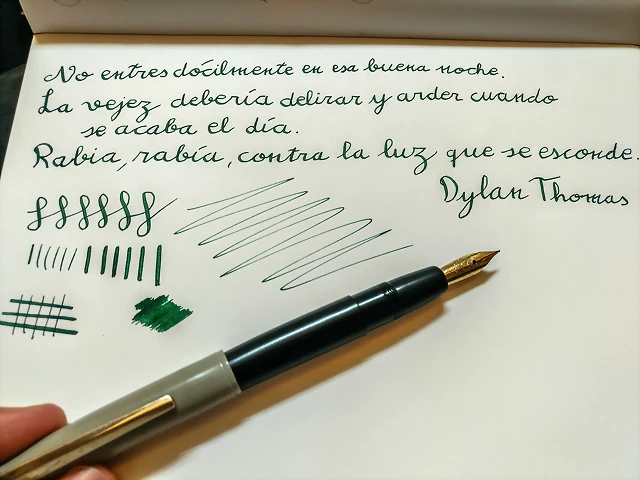 No entres dócilmente en esa buena noche.
La vejez debería delirar y arder cuando
se acaba el día.
Rabia, rabía, contra la luz que se esconde.
Dylan Thomas